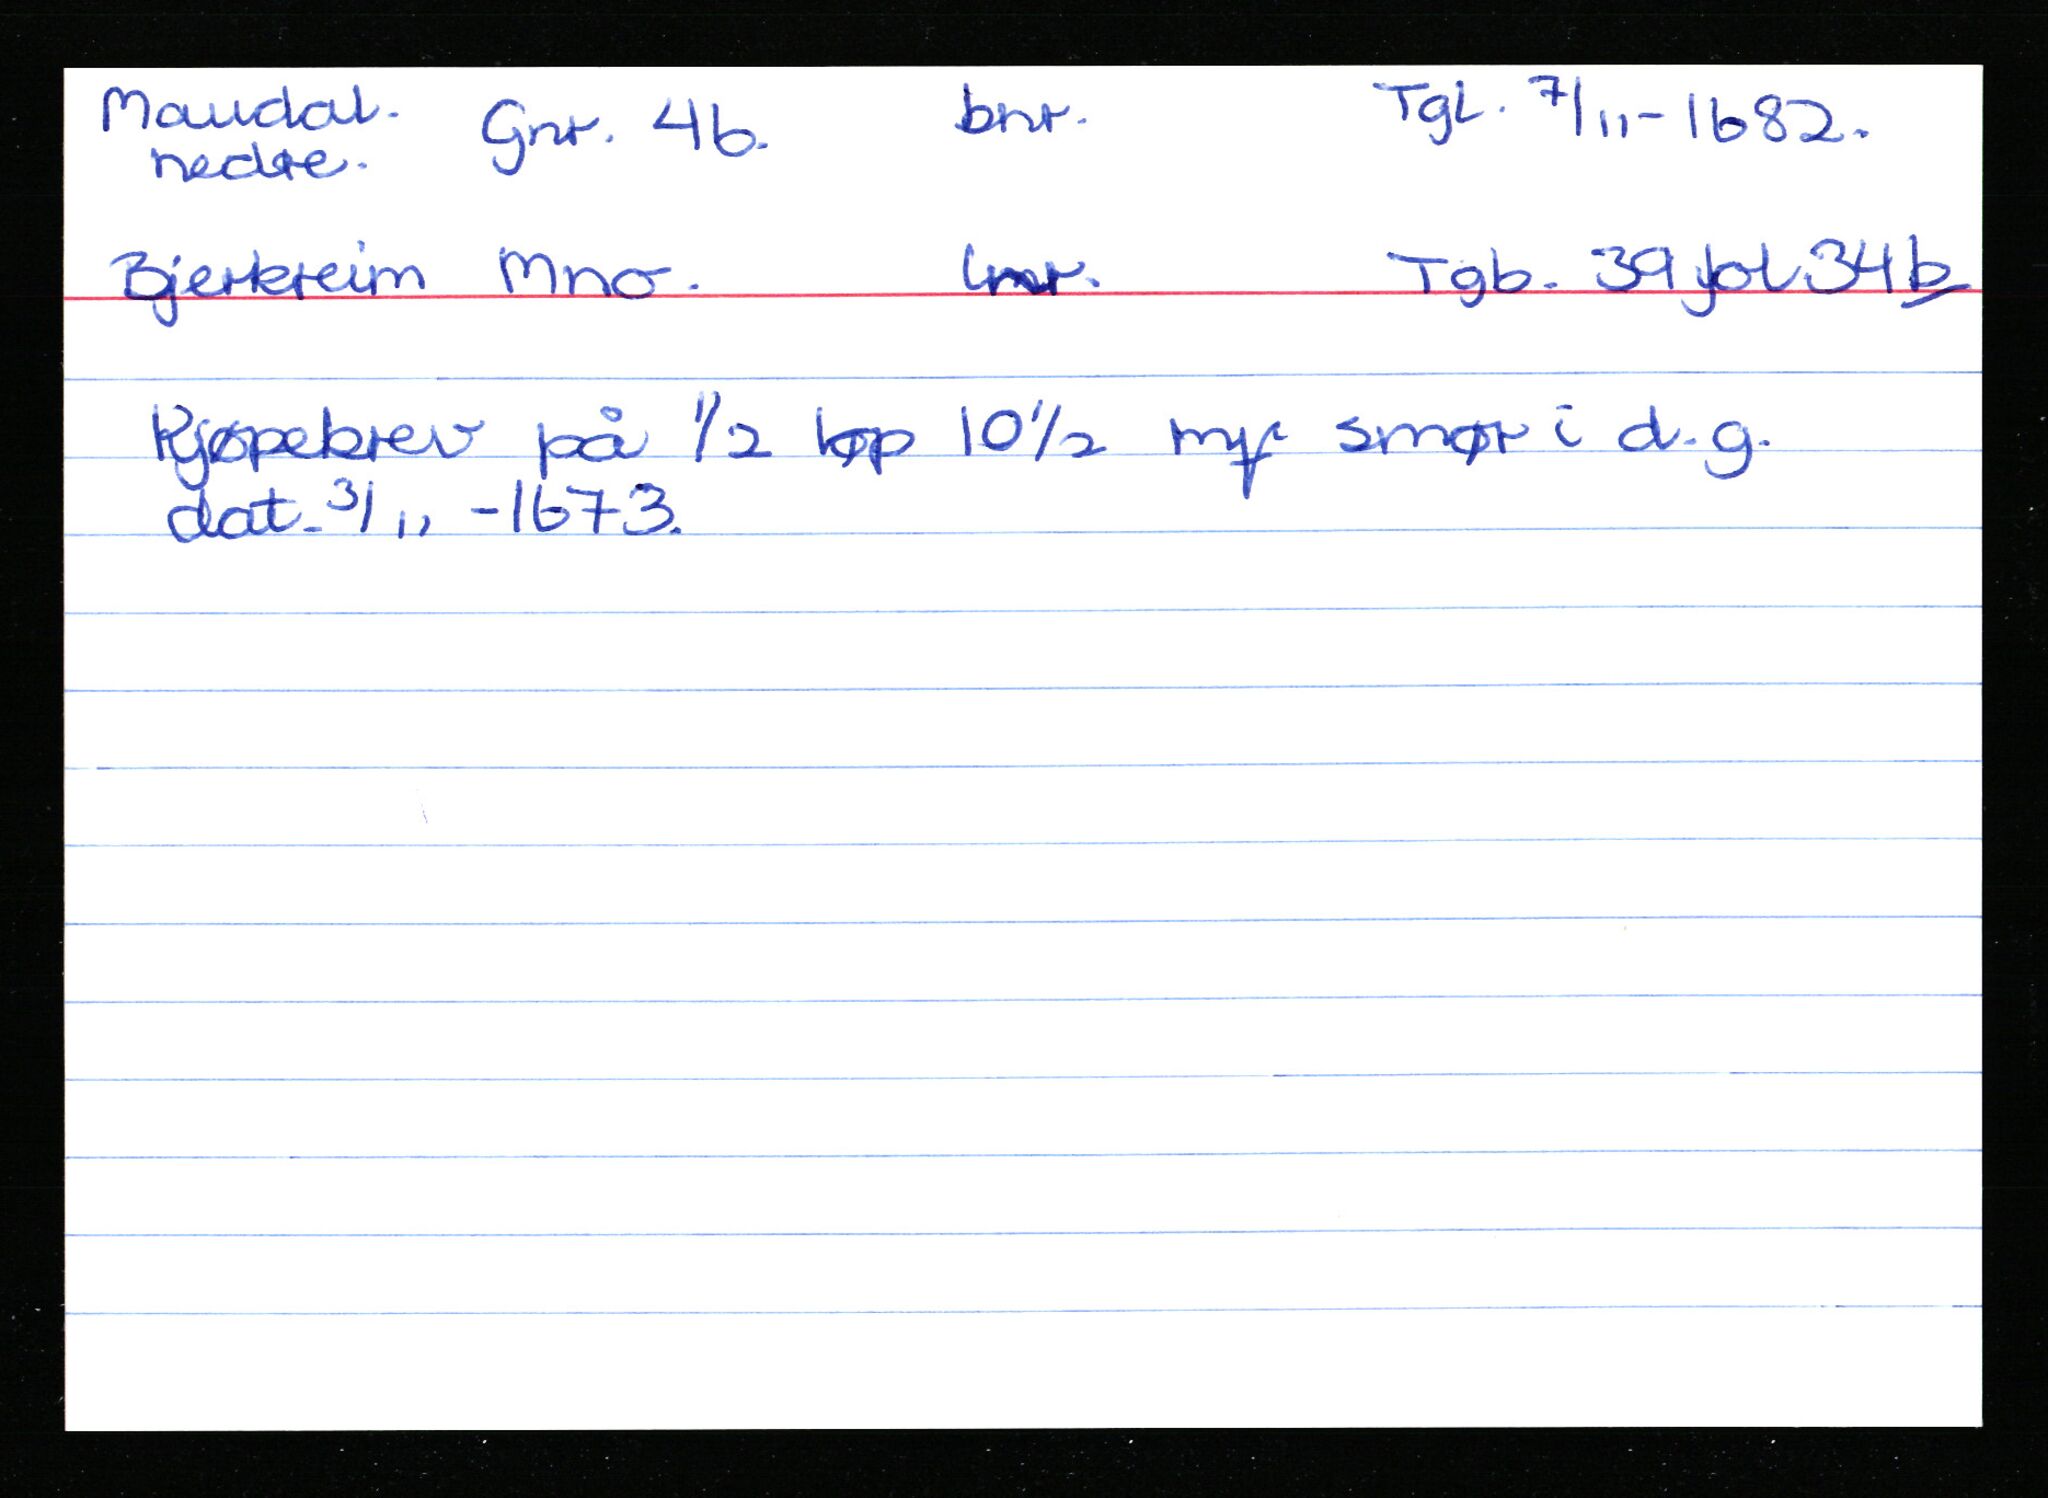 Maudal. Gnr. 46. bnr. Tgl. 7/11-1682.
nedre.
Bjerkreim Mno. lnr. Tgb. 39 fol 34b
Kjøpebrev på 1/2 løp 10 1/2 mrk smør i d.g.
dat. 3/11 -1673.